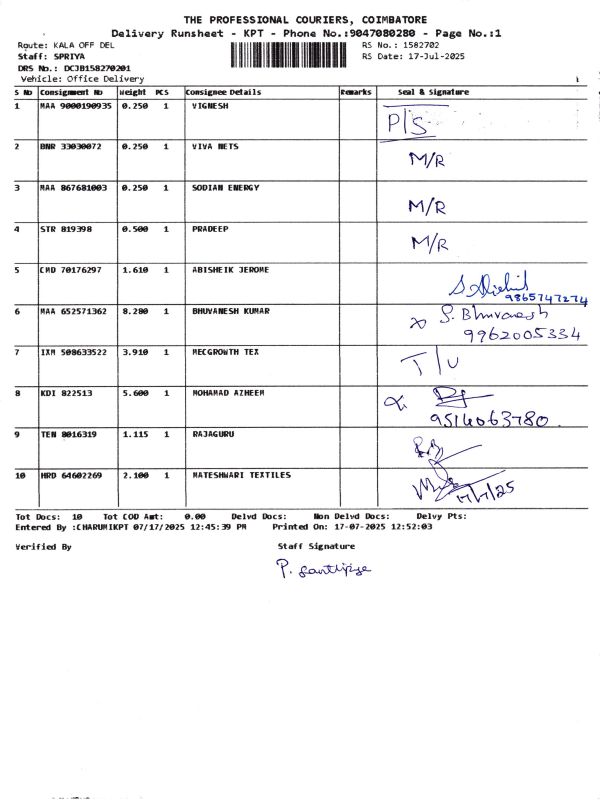 THE PROFESSIONAL COURIERS, COIMBATORE
Delivery Runsheet - KPT - Phone No.:9047080280 - Page No.:1
Route: KALA OFF DEL RS No.: 1582702
Staff: SPRIYA RS Date: 17-Jul-2025
DRS No.: DCJB158270201
Vehicle: Office Delivery
S No Consignment No Weight PCS Consignee Details Remarks Seal & Signature
1 MAA 9000190935 0.250 1 VIGNESH P/S
2 BNR 33030072 0.250 1 VIVA NETS M/R
3 MAA 867681003 0.250 1 SODIAN ENERGY M/R
4 STR 819398 0.500 1 PRADEEP M/R
5 CMD 70176297 1.610 1 ABISHEIK JEROME
9865747274
6 MAA 652571362 8.280 1 BHUVANESH KUMAR S. Bhuvanesh
9962005334
7 IXM 508633522 3.910 1 MECGROWTH TEX T/U
8 KDI 822513 5.600 1 MOHAMAD AZHEEM
9514063780
9 TEN 8016319 1.115 1 RAJAGURU
10 HRD 64602269 2.100 1 MATESHWARI TEXTILES 17/7/25
Tot Docs: 10 Tot COD Amt: 0.00 Delvd Docs: Non Delvd Docs: Delvy Pts:
Entered By :CHARUMIKPT 07/17/2025 12:45:39 PM Printed On: 17-07-2025 12:52:03
Verified By Staff Signature